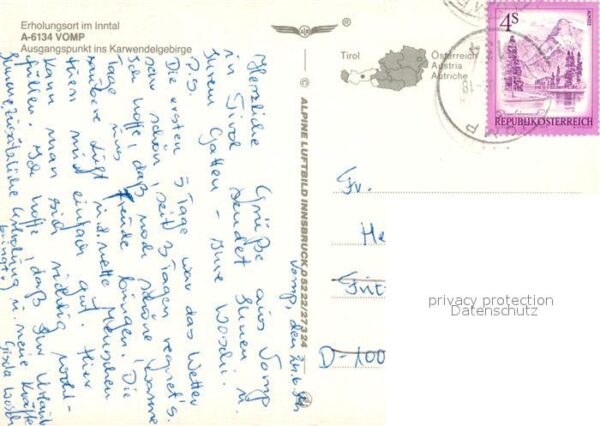 Erholungsort im Inntal
A-6134 VOMP
Ausgangspunkt ins Karwendelgebirge
®
Tirol
Österreich
Austria
Autriche
4S
REPUBLIK ÖSTERREICH
© ALPINE LUFTBILD INNSBRUCK 05222/27324
Herzliche Grüße aus Vomp
in Tirol sendet Ihnen u.
Ihrem Gatten - Ihre Woschi.
P.S.
Die ersten 3 Tage war das Wetter
sehr schön, seit 3 Tagen regnet's.
Ich hoffe, daß noch schöne, warme
Tage uns Freude bringen. Die
Luft u. d. nette Menschen
tuen mir einfach gut. Hier
kann man sich richtig wohl-
fühlen. Ich hoffe, daß Ihr Urlaub
Ihnen zusätzliche Erholung u. neue Kräfte
bringt.
Gisela
Vomp, den
Fr.
He
Frit
D-100
privacy protection
Datenschutz